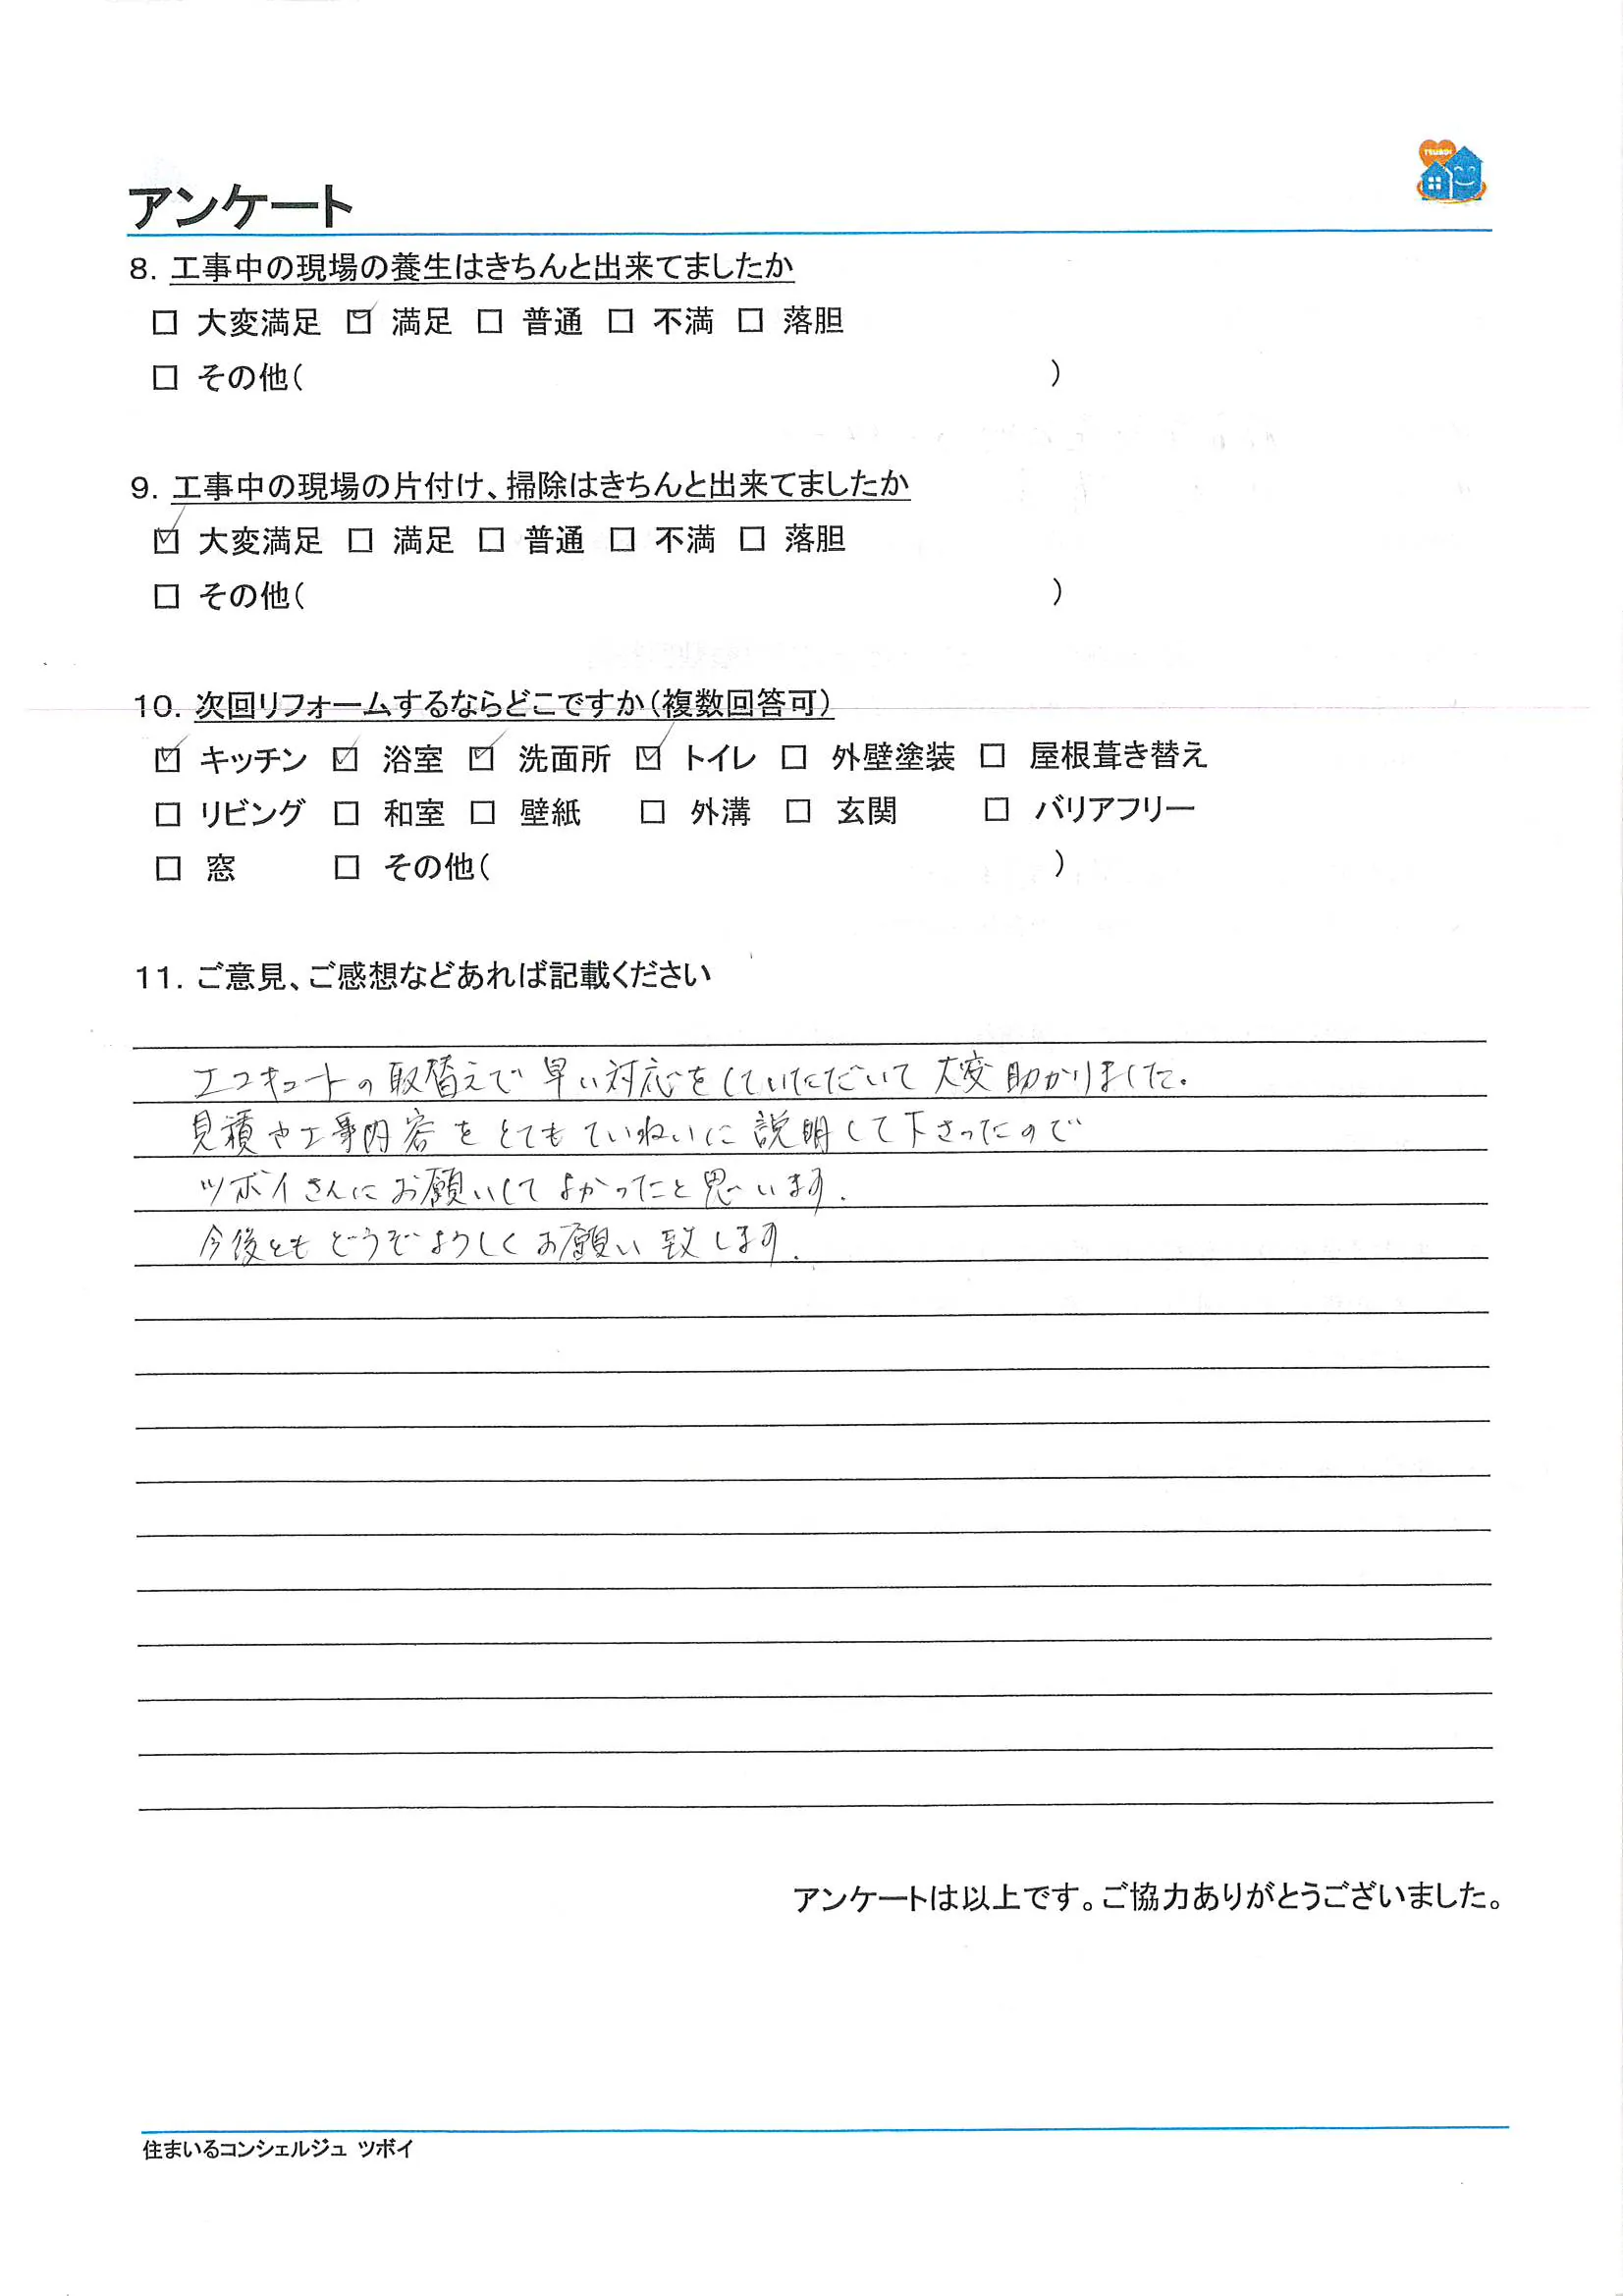 TSUBOI
アンケート
8. 工事中の現場の養生はきちんと出来てましたか
☐ 大変満足 ☑ 満足 ☐ 普通 ☐ 不満 ☐ 落胆
☐ その他( )
9. 工事中の現場の片付け、掃除はきちんと出来てましたか
☑ 大変満足 ☐ 満足 ☐ 普通 ☐ 不満 ☐ 落胆
☐ その他( )
10. 次回リフォームするならどこですか(複数回答可)
☑ キッチン ☑ 浴室 ☑ 洗面所 ☑ トイレ ☐ 外壁塗装 ☐ 屋根葺き替え
☐ リビング ☐ 和室 ☐ 壁紙 ☐ 外溝 ☐ 玄関 ☐ バリアフリー
☐ 窓 ☐ その他( )
11. ご意見、ご感想などあれば記載ください
エコキュートの取替えで早い対応をしていただいて大変助かりました。
見積や工事内容をとてもていねいに説明して下さったので
ツボイさんにお願いしてよかったと思います.
今後ともどうぞよろしくお願い致します.
アンケートは以上です。ご協力ありがとうございました。
住まいるコンシェルジュ ツボイ